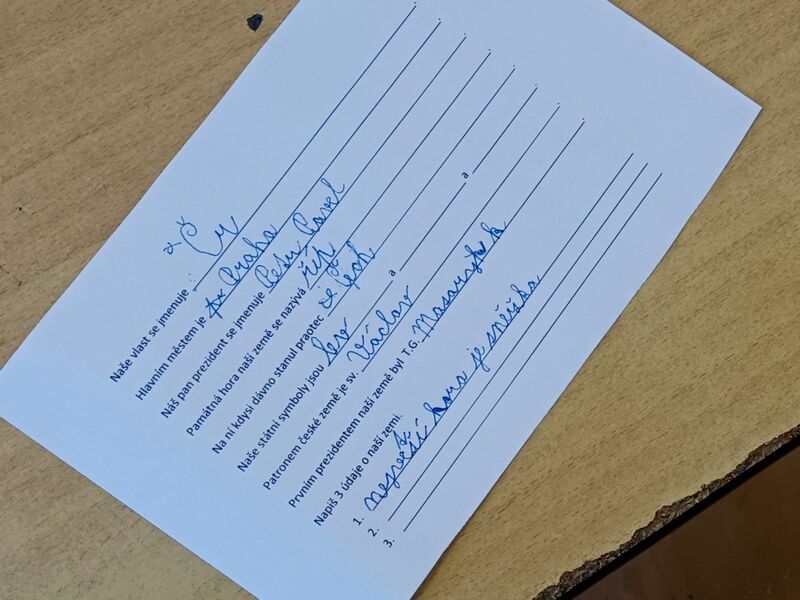 Naše vlast se jmenuje : Čr
Hlavním městem je Praha
Náš pan prezident se jmenuje Petr Pavel
Památná hora naší země se nazývá říp
Na ní kdysi dávno stanul praotec čech
Naše státní symboly jsou lev a a
Patronem české země je sv. Václav
Prvním prezidentem naší země byl T.G. Masaryk
Napiš 3 údaje o naší zemi.
1. největší hora je sněžka
2.
3.